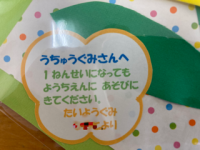 うちゅうぐみさんへ
1ねんせいになっても
ようちえんに あそびに
きてください。
たいようぐみ
より